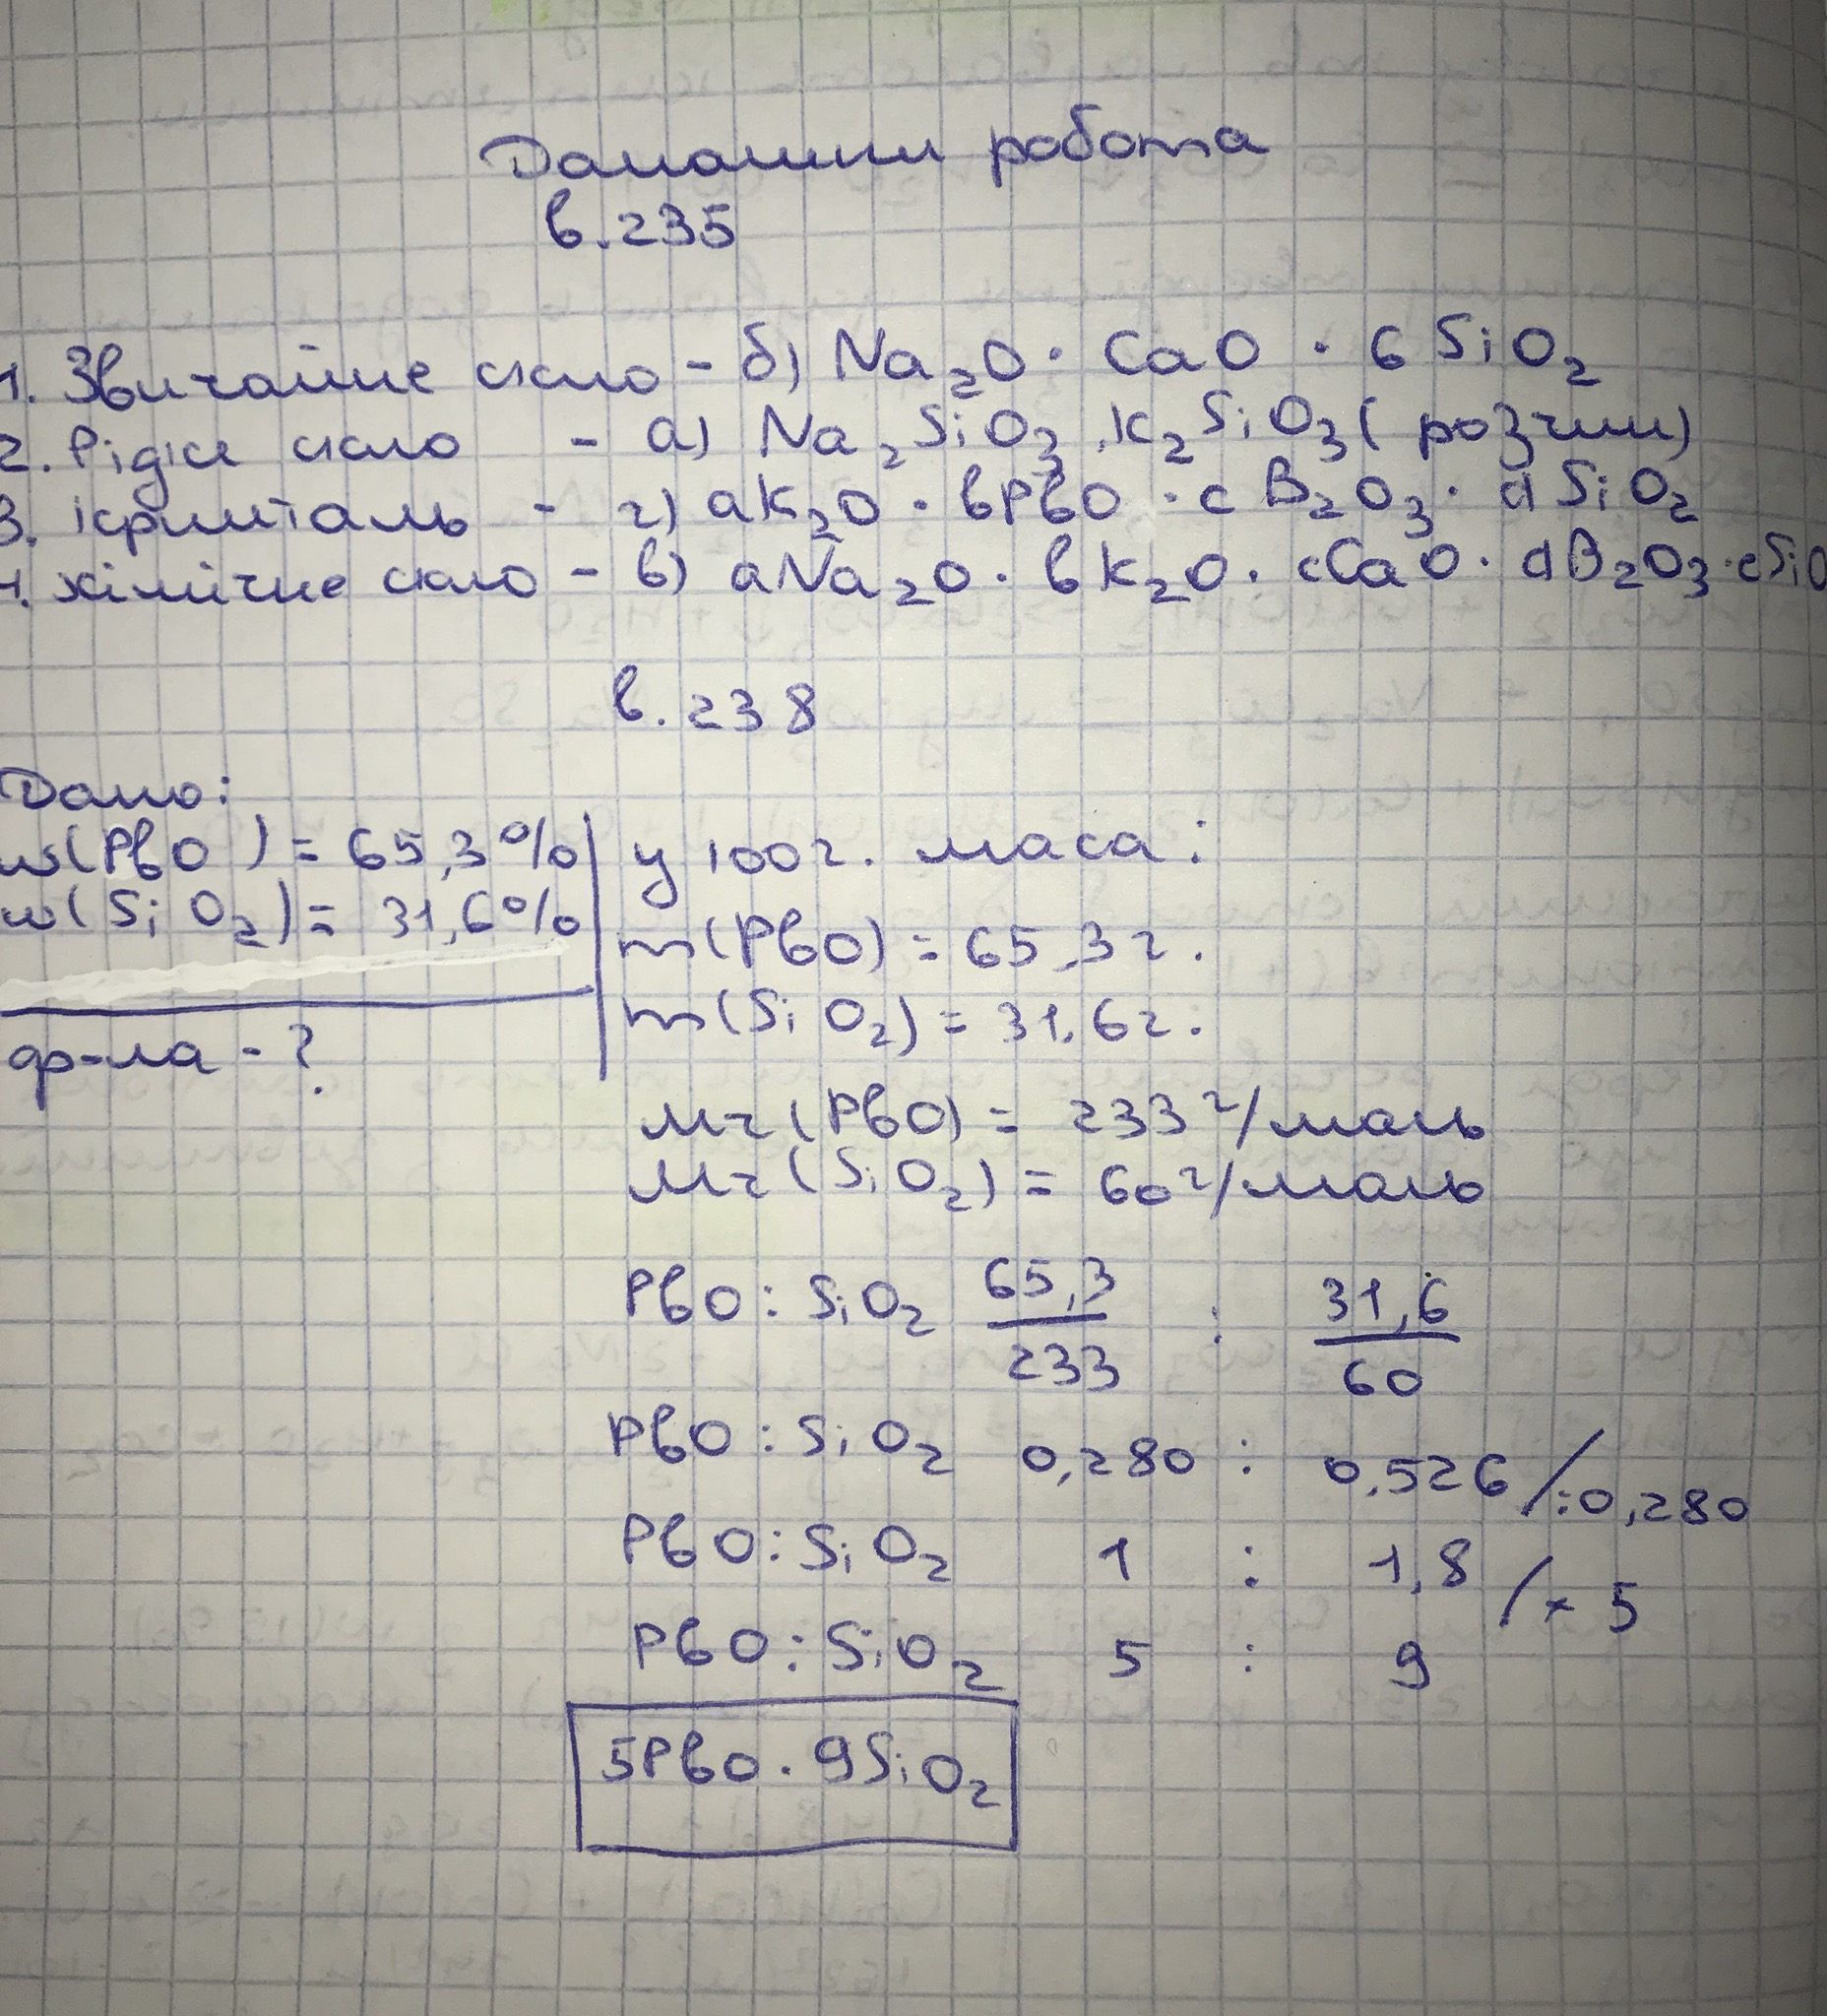 Домашня робота
в.235
1. Звичайне скло - б) Na₂O · CaO · 6SiO₂
2. Рідке скло - а) Na₂SiO₃, K₂SiO₃ (розчин)
3. кришталь - г) aK₂O · bPbO · cB₂O₃ · dSiO₂
4. хімічне скло - в) aNa₂O · bK₂O · cCaO · dB₂O₃ · eSiO
в. 238
Дано:
w(PbO) = 65,3%
w(SiO₂) = 31,6%
ф-ла - ?
у 100г. маса:
m(PbO) = 65,3г.
m(SiO₂) = 31,6г.
Mr(PbO) = 233 г/моль
Mr(SiO₂) = 60 г/моль
PbO : SiO₂ 65,3/233 : 31,6/60
PbO : SiO₂ 0,280 : 0,526 /:0,280
PbO : SiO₂ 1 : 1,8 /× 5
PbO : SiO₂ 5 : 9
5PbO · 9SiO₂